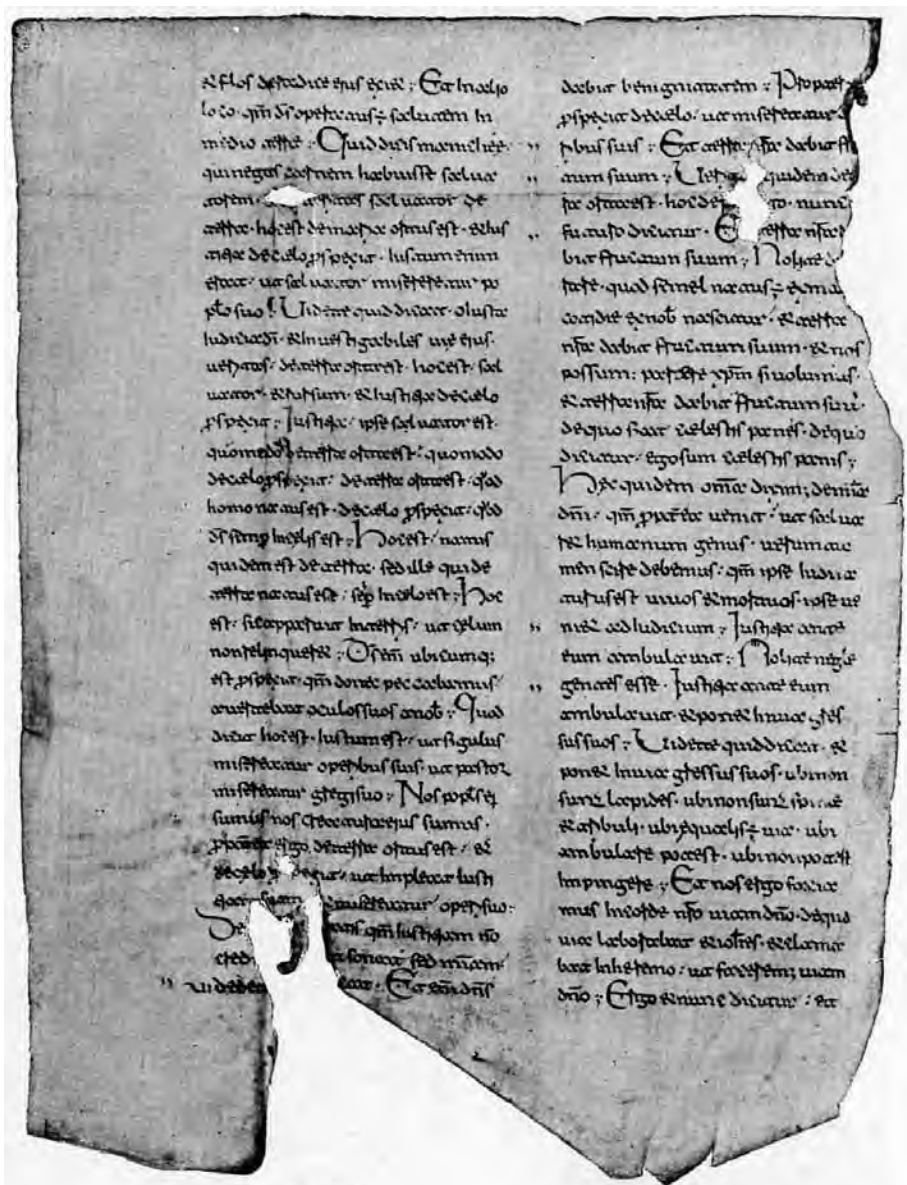 & flos de radice ejus exiet; Et in alio
loco. qm̄ ds̄ operatus; salutem in
medio terre; Quid dicis manichee.
qui negas carnem habuisse salua
torem. salvator de
terra. hoc est de maria ortus est. & ius
titia de celo prospexit. Iustum enim
erat. ut saluator misereretur po
plo suo; Uidete quid dicat. o iusta
iudicia dī. & inuestigabiles uie ejus.
ueritas. de terra orta est. hoc est. sal
uator. & rursum. & iustitia de celo
prospexit; Iustitia. ipse saluator est.
quomodo de terra orta est. quomodo
de celo prospexit. de terra orta est. qđ
homo natus est. de celo prospexit. qđ
ds̄ semp in celis est; Hoc est. natus
quidem est de terra. sed ille qui de
terra natus est. sēp in celo est; Hoc
est. sic apparuit in terris. ut celum
non relinqueret; Est enī ubicumq;
est prospexit. qm̄ donec peccabamus.
auertebat oculos suos a nob̄; Quod
dicit hoc est. Iustum est. ut figulus
misereatur operibus suis. ut pastor
misereatur gregi suo; Nos popls ej
sumus nos creatura ejus sumus.
propterea ergo de terra ortus est. &
de celo prospexit. ut impleat iusti
tiam suam & misereatur operi suo.
qm̄ iustitiam nō
sonat sed mīam.
Et enī dn̄s
dabit benignitatem; Propterea
prospexit de celo. ut misereatur
ribus suis; Et terra nr̄a dabit fru
ctum suum; quidem de
ra orta est. hoc de nunc
futuro dicitur. Et terra nr̄a
bit fructum suum; Nolite
rare. quod semel natus; ex ma
cotidie ex nob̄ nascitur. & terra
nr̄a dabit fructum suum. & nos
possum; parere xp̄m si volumus.
& terra nr̄a dabit fructum suū.
de quo fiat celestis panis. de quo
dicitur. ego sum celestis panis;
Hec quidem oīa diximꝰ de mīa
dn̄i. qm̄ propterea uenit. ut salua
ret humanum genus. uerum tac
men scire debemus. qm̄ ipse iudica
turus est uiuos & mortuos. ipse ue
niet ad iudicium; Iustitia ante
eum ambulauit; Nolite negle
gentes esse. Iustitia ante eum
ambulauit. & ponet in uia gres
sus suos; Uidete quid dicat. &
ponet in uia gressus suos. ubi non
sunt lapides. ubi non sunt spine
& tribuli. ubi equalis; uia. ubi
ambulare potest. ubi non potest
impingere; Et nos ergo facia
mus in corde nr̄o uiam dn̄o. de qua
uia laborabat & ioh̄es. & clama
bat in heremo. ut facerem; uiam
dn̄o; Ergo & nunc dicitur. et